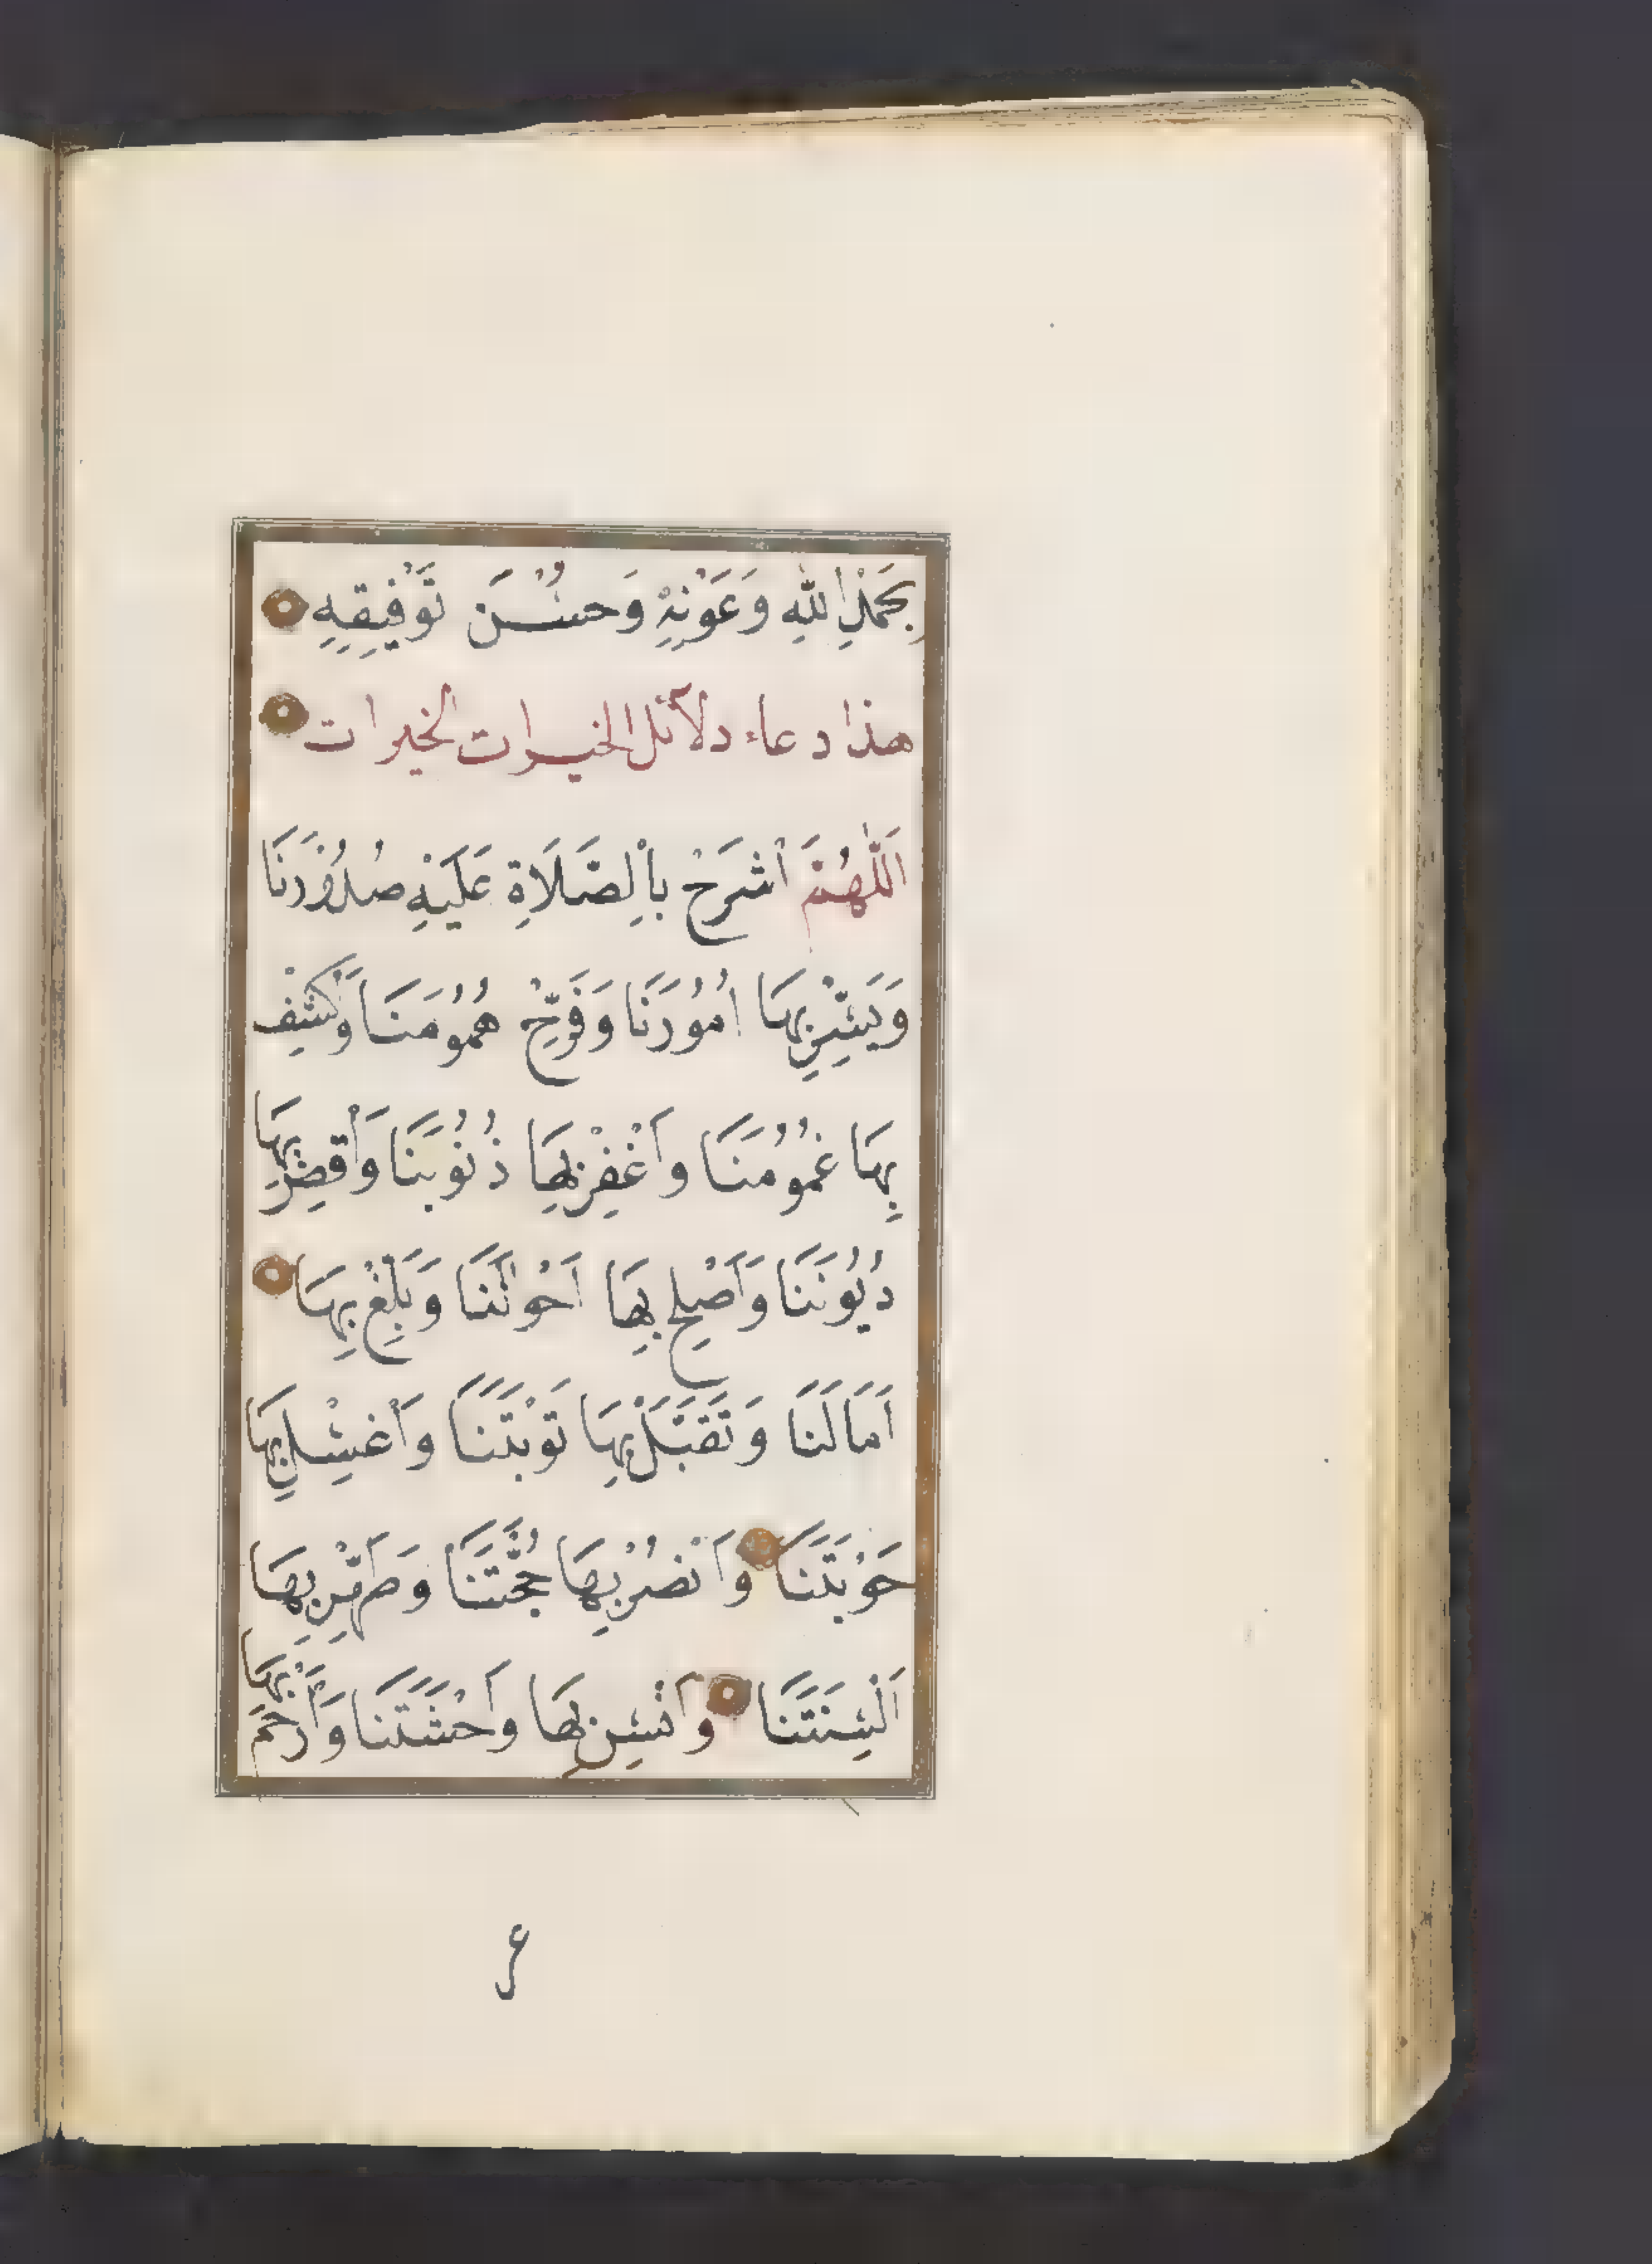 بِحَمْدِ اللهِ وَعَوْنِهِ وَحُسْنَ تَوْفِيقِهِ
هذا دعاء دلآئل الخيرات الخيرات
اَللّٰهُمَّ اشْرَحْ بِالصَّلَاةِ عَلَيْهِ صُدُوْرَنَا
وَيَسِّرْ بِهَا اُمُوْرَنَا وَفَرِّجْ هُمُوْمَنَا وَكْشِفْ
بِهَا غُمُوْمَنَا وَاَغْفِرْ بِهَا ذُنُوْبَنَا وَاَقْضِ بِهَا
دُيُوْنَنَا وَاَصْلِحْ بِهَا اَحْوَالَنَا وَبَلِّغْ بِهَا
اَمَالَنَا وَتَقَبَّلْ بِهَا تَوْبَتَنَا وَاَغْسِلْ بِهَا
حَوْبَتَنَا وَانْصُرْ بِهَا حُجَّتَنَا وَطَهِّرْ بِهَا
اَلْسِنَتَنَا وَاٰنِسْ بِهَا وَحْشَتَنَا وَاَرْحَمْ بِهَا